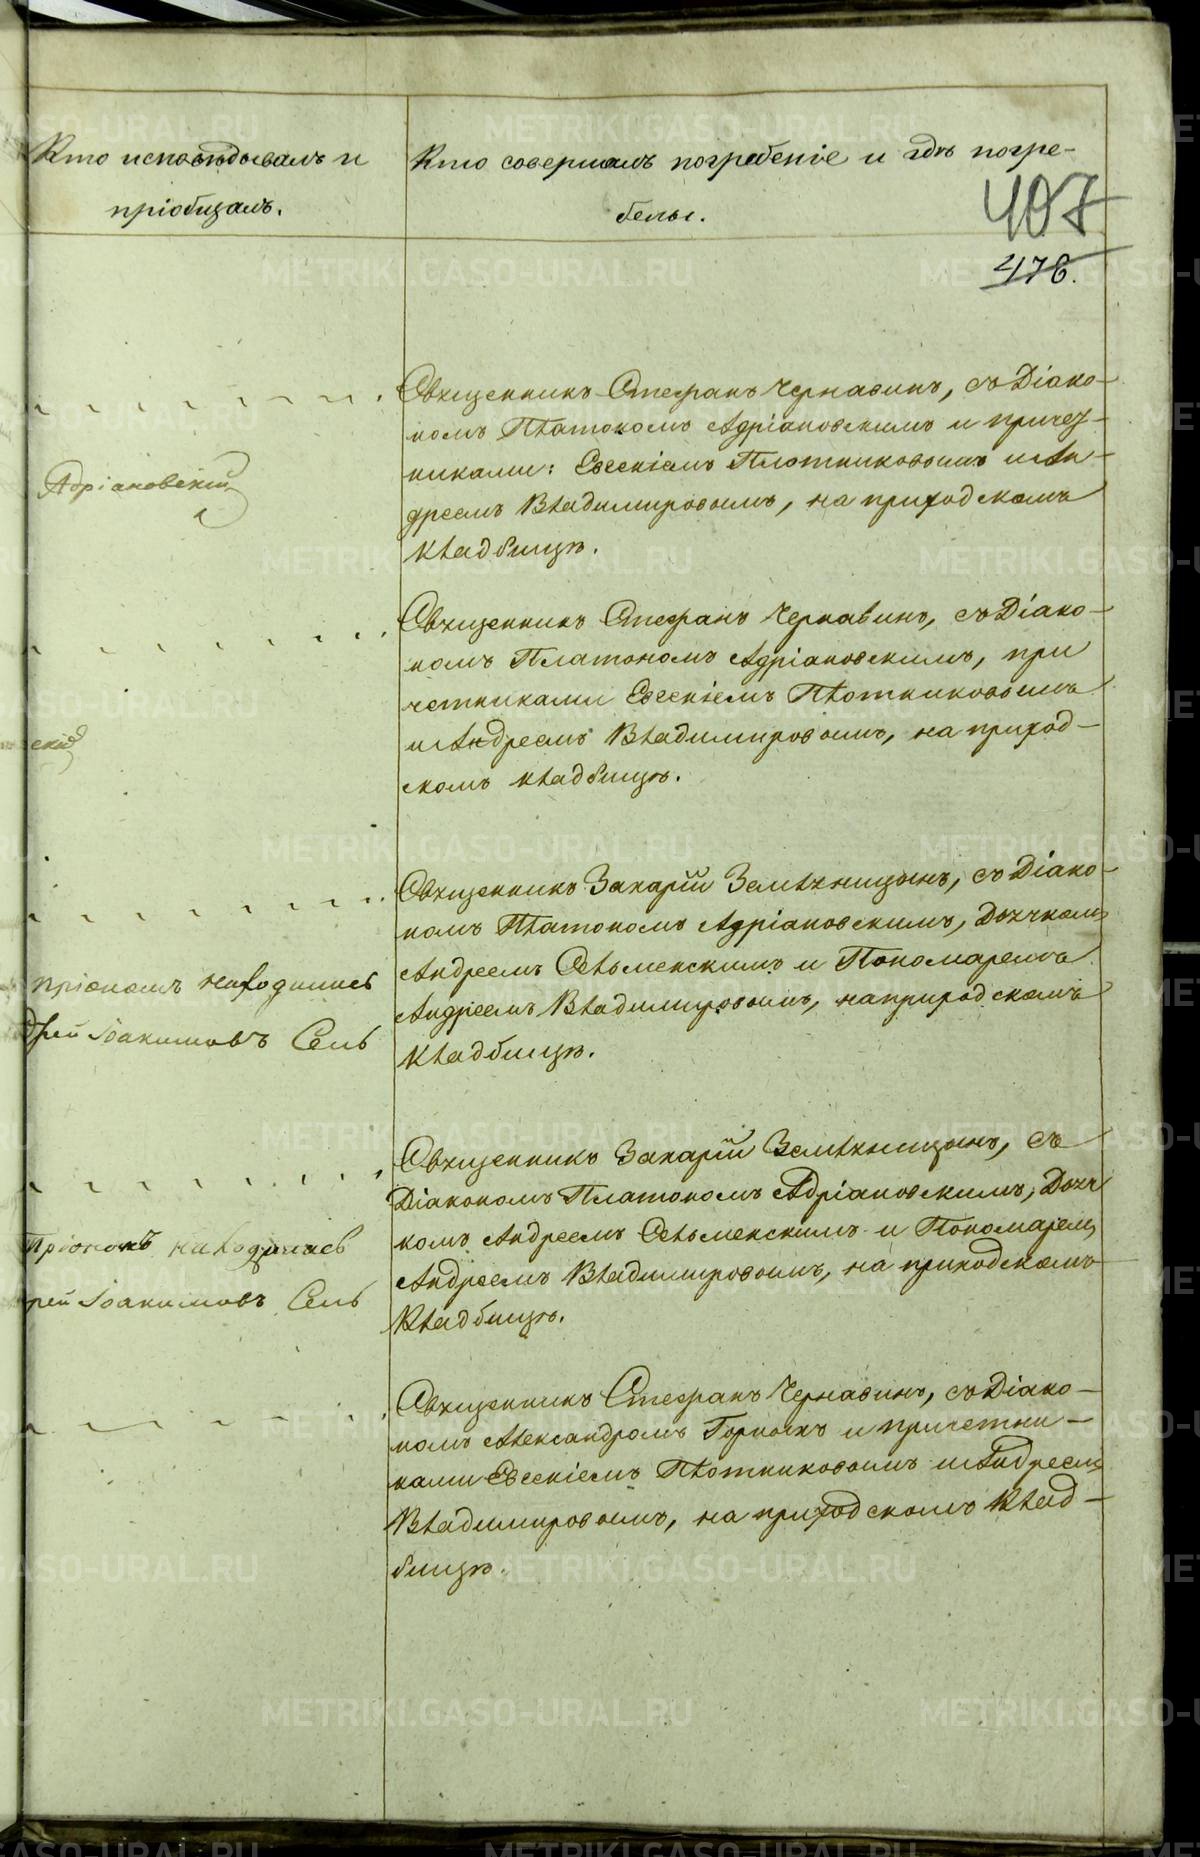 Кто исповѣдывалъ и
пріобщалъ.
Кто совершалъ погребеніе и гдѣ погре-
бены.
407
478.
Священникъ Стефанъ Чернавинъ, съ Діако-
номъ Платономъ Адріановскимъ и причет-
никами: Евсеніемъ Плотниковымъ и Ан-
дреемъ Владимировымъ, на приходскомъ
кладбищѣ.
Адріановскій
Священникъ Стефанъ Чернавинъ, съ Діако-
номъ Платономъ Адріановскимъ, при
четниками Евсеніемъ Плотниковымъ
и Андреемъ Владимировымъ, на приход-
скомъ кладбищѣ.
скій
Священникъ Захарій Земляницынъ, съ Діако-
номъ Платономъ Адріановскимъ, Дьячкомъ
Андреемъ Сельменскимъ и Пономаремъ
Андреемъ Владимировымъ, на приходскомъ
кладбищѣ.
находились
Іоакимовъ Сель
Священникъ Захарій Земляницынъ, съ
Діакономъ Платономъ Адріановскимъ, Дьяч
комъ Андреемъ Сельменскимъ и Пономаремъ
Андреемъ Владимировымъ, на приходскомъ
кладбищѣ.
находились
рей Іоакимовъ Сель
Священникъ Стефанъ Чернавинъ, съ Діако-
номъ Александромъ Горныхъ и причетни-
ками Евсеніемъ Плотниковымъ и Андреемъ
Владимировымъ, на приходскомъ клад-
бищѣ.
METRIKI.GASO-URAL.RU